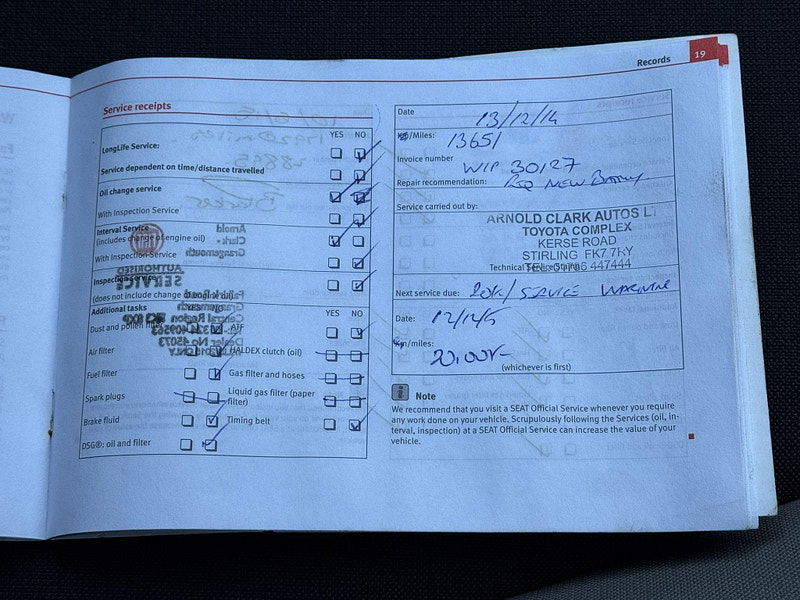 Records 19
Service receipts
YES NO
LongLife Service:
Service dependent on time/distance travelled
Oil change service
With Inspection Service
Interval Service
(includes change of engine oil)
With Inspection Service
Inspection service
(does not include change
Additional tasks
YES NO
Dust and pollen filter
ATF
Air filter
HALDEX clutch (oil)
Fuel filter
Gas filter and hoses
Spark plugs
Liquid gas filter (paper
filter)
Brake fluid
Timing belt
DSG®: oil and filter
Date 13/12/14
Km/Miles: 13651
Invoice number WIP 30127
Repair recommendation: RQ NEW BATTERY
Service carried out by:
ARNOLD CLARK AUTOS LT
TOYOTA COMPLEX
KERSE ROAD
STIRLING FK7 7RY
TEL: 01786 447444
Technical Service Stamp
Next service due: 20K / SERVICE WARNING
Date: 12/12/15
Km/miles:
20,000
(whichever is first)
Note
We recommend that you visit a SEAT Official Service whenever you require
any work done on your vehicle. Scrupulously following the Services (oil, in-
terval, inspection) at a SEAT Official Service can increase the value of your
vehicle.
Arnold
Clark -
Grangemouth
AUTHORISED
SERVICE